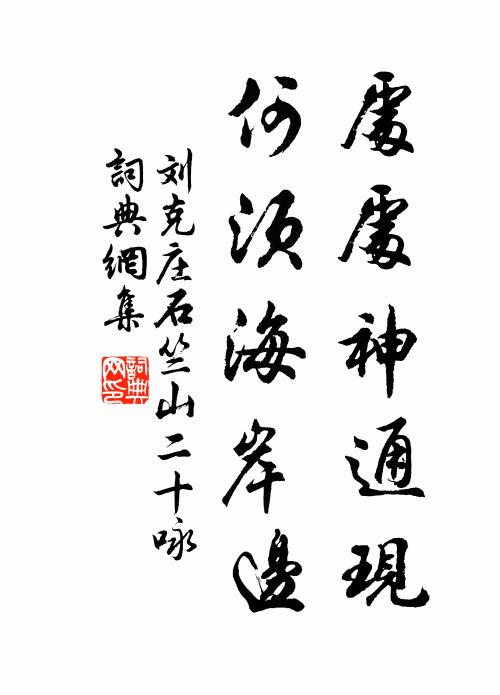 處處神通現
何須海岸邊
刘克庄石竺山二十咏
詞典網集
詞典
网印